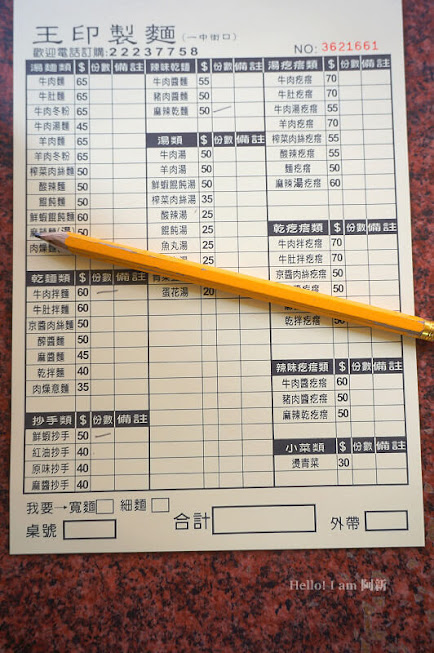 王印製麵(一中街口)
歡迎電話訂購:22237758
NO: 3621661
湯麵類 $ 份數 備註
牛肉麵 65
牛肚麵 65
牛肉冬粉 65
牛肉湯麵 45
羊肉麵 65
羊肉冬粉 65
榨菜肉絲麵 50
酸辣麵 50
餛飩麵 50
鮮蝦餛飩麵 60
麻辣麵(湯) 50
肉燥麵
乾麵類 $ 份數 備註
牛肉拌麵 60
牛肚拌麵 60
京醬肉絲麵 50
醡醬麵 50
麻醬麵 45
乾拌麵 40
肉燥意麵 35
抄手類 $ 份數 備註
鮮蝦抄手 50
紅油抄手 40
原味抄手 40
麻醬抄手 40
辣味乾麵 $ 份數 備註
牛肉醬麵 55
豬肉醬麵 50
麻辣乾麵 50
湯類 $ 份數 備註
牛肉湯 50
羊肉湯 50
鮮蝦餛飩湯 50
榨菜肉絲湯 35
酸辣湯 25
餛飩湯 25
魚丸湯 25
蛋花湯 20
湯疙瘩類 $ 份數 備註
牛肉疙瘩 70
牛肚疙瘩 70
牛肉湯疙瘩 55
羊肉疙瘩 70
榨菜肉絲疙瘩 55
酸辣疙瘩 55
麵疙瘩 50
麻辣湯疙瘩 60
乾疙瘩類 $ 份數 備註
牛肉拌疙瘩 70
牛肚拌疙瘩 70
京醬肉絲疙瘩 50
乾拌疙瘩 50
辣味疙瘩類 $ 份數 備註
牛肉醬疙瘩 60
豬肉醬疙瘩 50
麻辣乾疙瘩 50
小菜類 $ 份數 備註
燙青菜 30
我要→寬麵 細麵
桌號 合計 外帶
Hello! I am 阿新